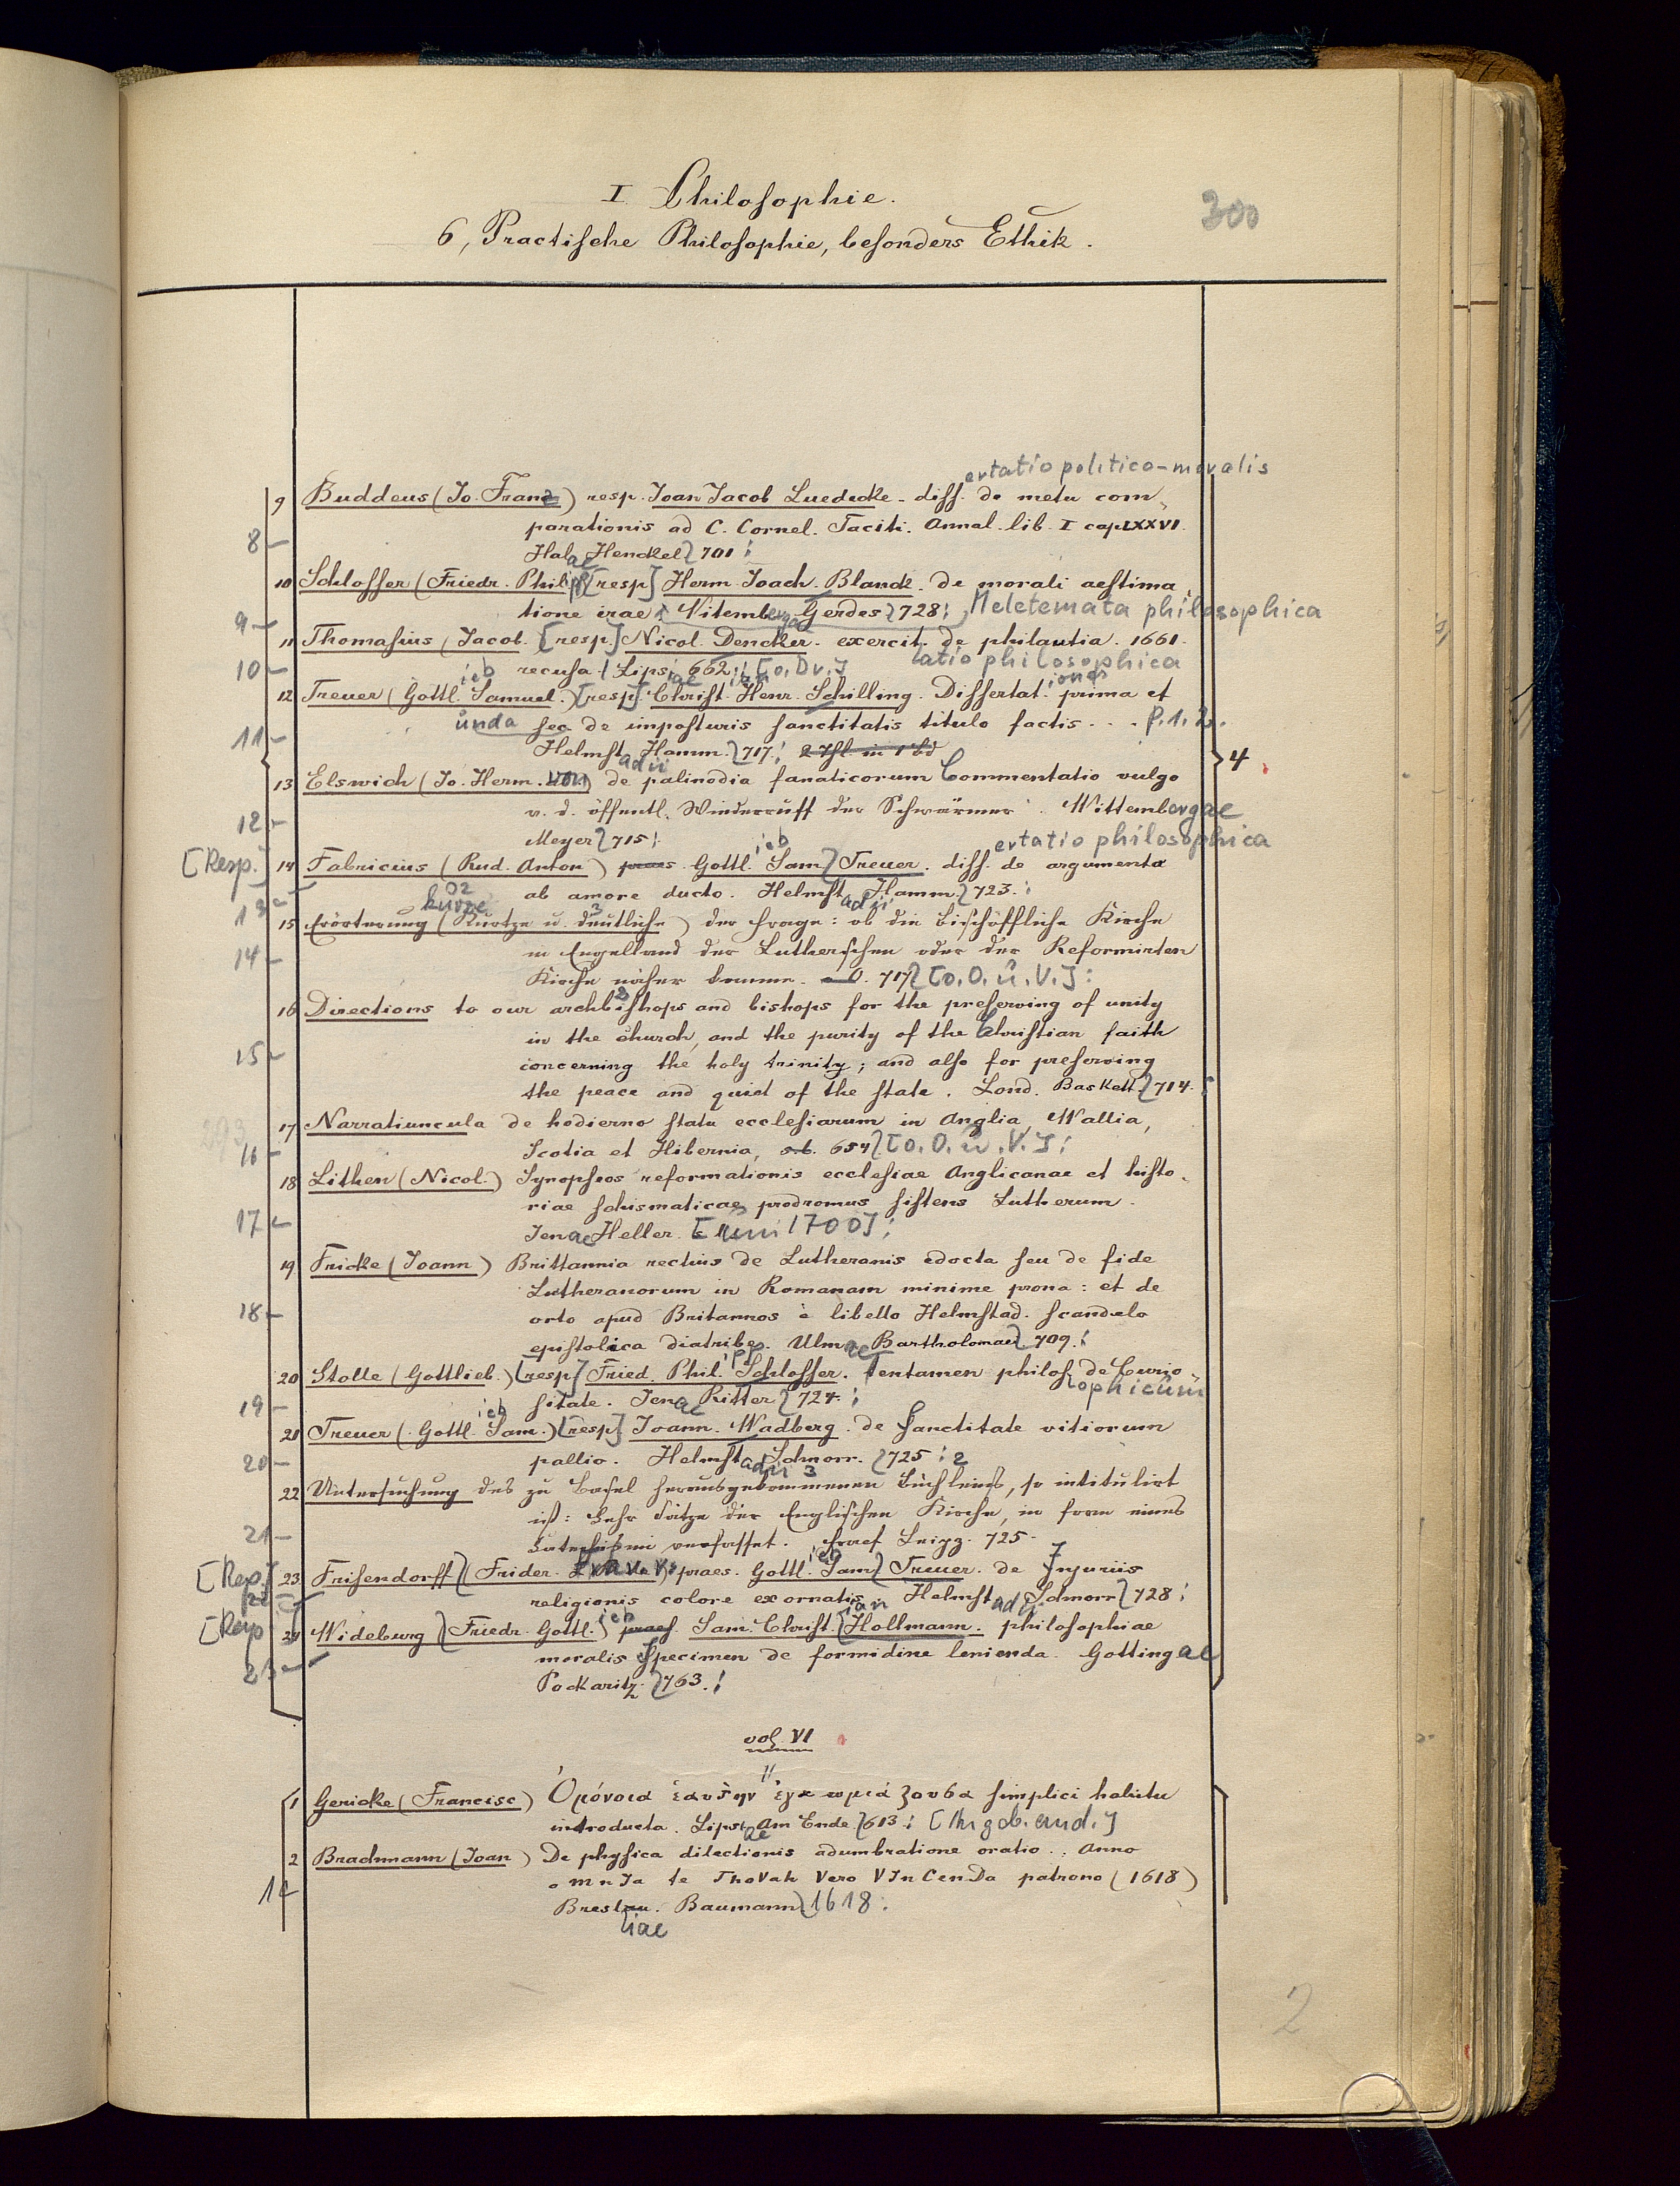 I Philosophie.
300
6, Practische Philosophie, besonders Ethik.
ertatio politico-moralis
9 Buddeus (Jo. Franz) resp. Joan Jacob Luedecke - diss. de metu com-
parationis ad C. Cornel. Taciti. Annal. lib. I cap LXXVI.
8 Halae Henckel 701:
10 Schlosser (Friedr. Philipp [resp] Herm. Joach. Blanck. de morali aestima
tione irae. Vitembergae Gerdes 728; Meletemata philosophica
9
11 Thomasius, Jacob. [resp.] Nicol. Dencker. exercit. de philautia. 1661.
10 recusa. Lipsiae 662: [o. Dr.] tatio philosophica
12 Treuer (Gottlieb Samuel.) [resp]. Christian Henr. Schilling. Dissertationes prima et
secunda de imposturis sanctitatis titulo factis - - . P. 1. 2.
11 Helmstadii Hamm. 717: 2 Thl. in 1 bd
4
13 Elswich (Jo. Herm. von) de palinodia fanaticorum Commentatio vulgo
v. d. öffentl. Wiederruff der Schwärmer. Wittembergae
12 Meyer 715:
ertatio philosophica
[Resp.] 14 Fabricius (Rud. Anton) praes. Gottlieb Sam. Treuer. diss. de argumento
ab amore ducto. Helmstadii Hamm. 723.:
13
kurze
15 Erörterung (Kurtze u. deutliche) der Frage: ob die bischöffliche Kirche
14 in Engelland der Lutherschen oder der Reformirten
Kirche näher komme. 717 [o. O. u. V.]:
16 Directions to our archbishops and bishops for the preserving of unity
in the church, and the purity of the Christian faith
15 concerning the holy trinity; and also for preserving
the peace and quiet of the state. Lond. Baskett. 714.:
17 Narratiuncula de hodierno statu ecclesiarum in Anglia, Wallia,
16 Scotia et Hibernia, s.b. 654 [o. O. u. V.]:
18 Lithen (Nicol.) Synopseos reformationis ecclesiae Anglicanae et histo-
riae schismaticae prodromus sistens Lutherum.
17 Jenae Heller. [um 1700]:
19 Fricke (Joann) Brittannia rectius de Lutheranis edocta seu de fide
Lutheranorum in Romanam minime prona: et de
18 orto apud Britannos e libello Helmstad. scandalo
epistolica diatribe. Ulmae Bartholomaei 709.:
20 Stolle (Gottlieb.) [resp] Fried. Philipp. Schlosser. tentamen philosophicum de Curio-
19 sitate. Jenae Ritter 724.:
21 Treuer (Gottlieb Sam.) [resp] Joann. Wadberg. de Sanctitate vitiorum
20 pallio. Helmstadii Schnorr. 725: 2
22 Untersuchung des zu Basel herausgekommenen Büchleins, so intitulirt
21 ist: Lehr Sätze der Englischen Kirche, in form eines
Catechismi verfasset. Leipz. 725.
[Resp.] 23 Frisendorff (Frider. ) praes. Gottlieb Sam. Treuer. de Injuriis
22 religionis colore exornatis Helmstadii Schnorr 728:
[Resp 24 Wideburg (Friedr. Gottlieb.) praes. Sam. Christian Hollmann. philosophiae
23 moralis Specimen de formidine lenienda. Gottingae
Pockwitz. 763.:
vol. VI
1 Gericke (Francisc) Ὁμόνοια ἑαυτὴν ἐγκωμιάζουσα simplici habitu
introducta. Lipsiae Am Ende. 613: [Angeb. and.]
2 Brachmann (Joan) De physica dilectionis adumbratione oratio.. Anno
14 omnIa te IhoVah Vero VInCenDa patrono (1618)
Breslau. Baumann 1618:
liae
2